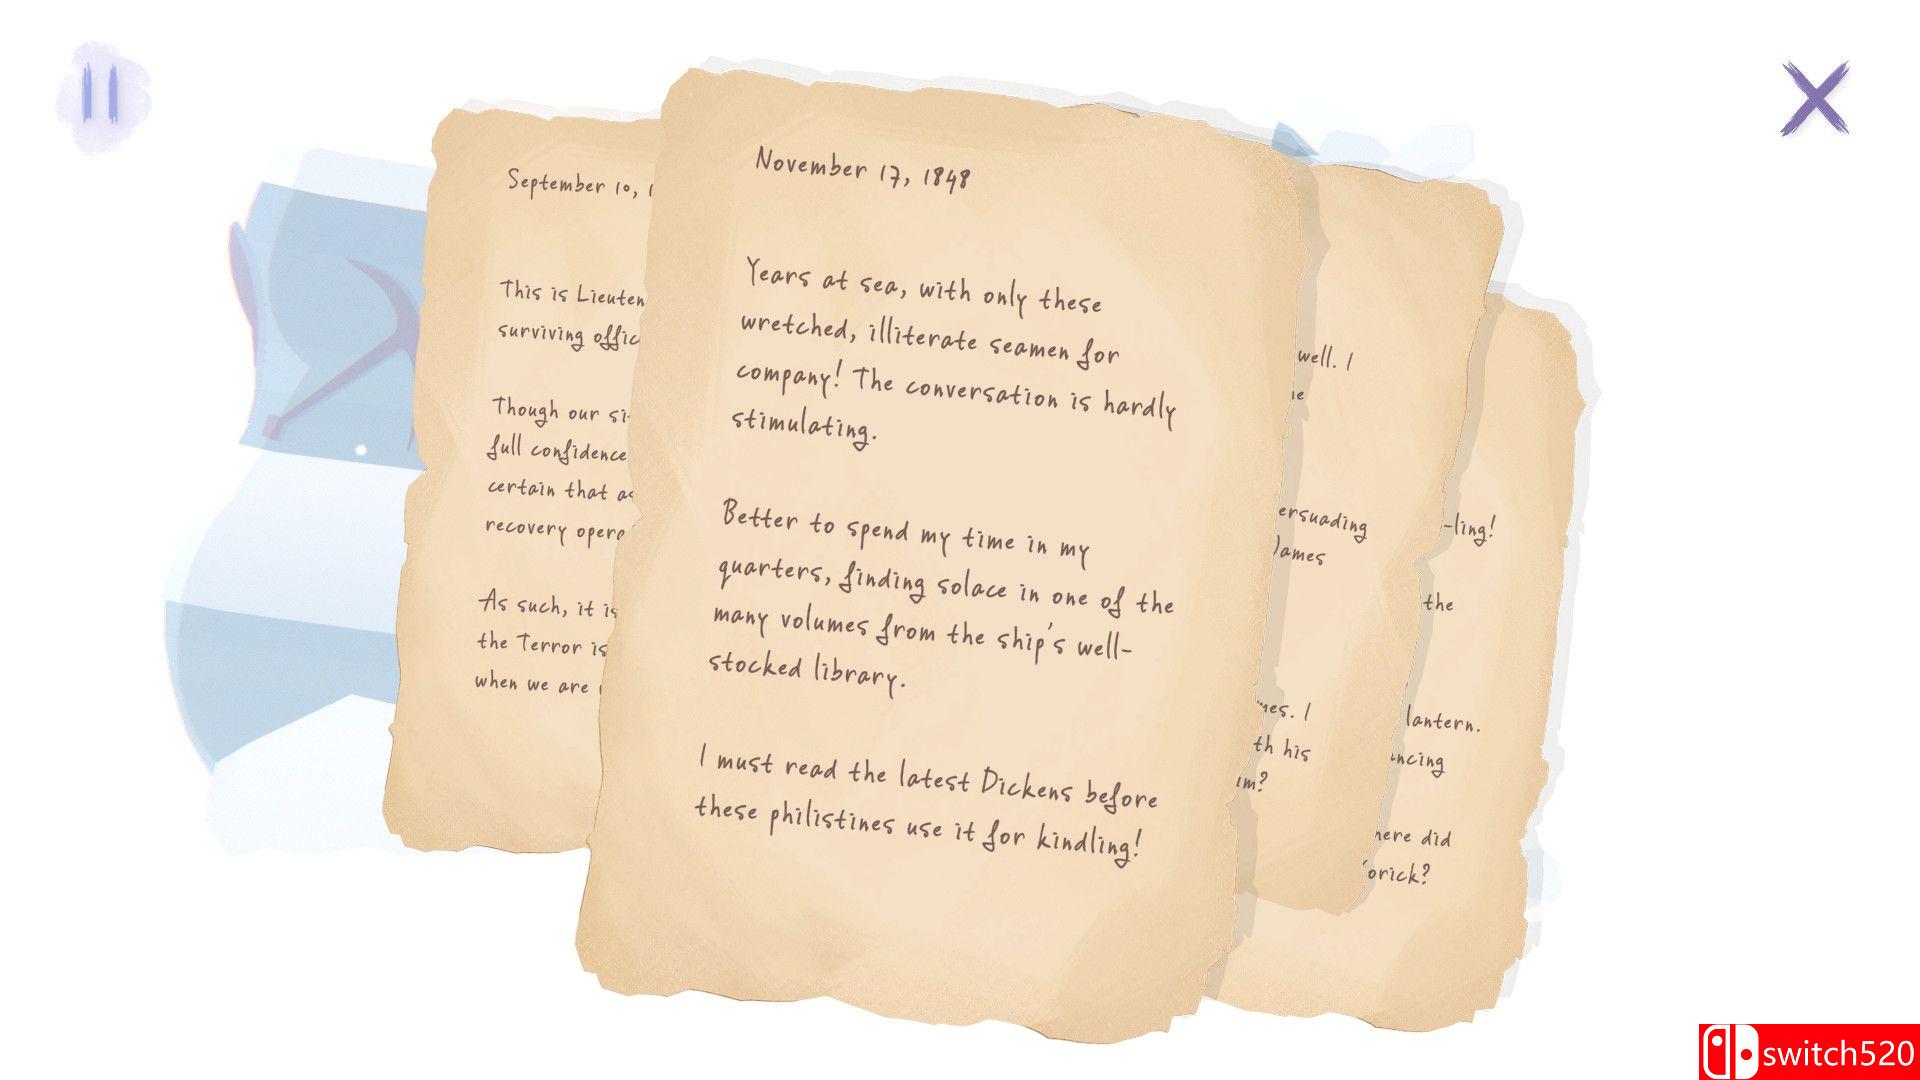 September 10,
This is Lieuten
surviving offic
Though our si
full confidence
certain that as
recovery opera
As such, it is
the Terror is
when we are
November 17, 1848
Years at sea, with only these
wretched, illiterate seamen for
company! The conversation is hardly
stimulating.
Better to spend my time in my
quarters, finding solace in one of the
many volumes from the ship's well-
stocked library.
I must read the latest Dickens before
these philistines use it for kindling!
well. I
ersuading
James
mes. I
th his
um?
-ling!
the
lantern.
ncing
here did
Yorick?
switch520